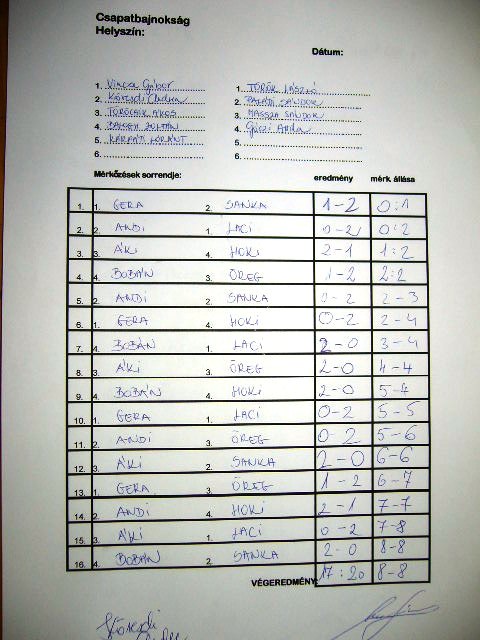 Csapatbajnokság
Helyszín:
Dátum:
1. Vincze Gábor 1. TÖRÖK LÁSZLÓ
2. Köröndi Andrea 2. PALÁDI SÁNDOR
3. TÖRÖCSIK ÁKOS 3. MASSZA SÁNDOR
4. ZOLTÁN 4. Géczi Attila
5. KÁRPÁTI LÓRÁNT 5.
6. 6.
Mérkőzések sorrendje: eredmény mérk. állása
1. 1. GERA 2. SANKA 1-2 0:1
2. 2. ANDI 1. LACI 0-2 0:2
3. 3. ÁKI 4. HOKI 2-1 1:2
4. 4. BOBÁN 3. ÖREG 1-2 2:2
5. 2. ANDI 2. SANKA 0-2 2-3
6. 1. GERA 4. HOKI 0-2 2-4
7. 4. BOBÁN 1. LACI 2-0 3-4
8. 3. ÁKI 3. ÖREG 2-0 4-4
9. 4. BOBÁN 4. HOKI 2-0 5-4
10. 1. GERA 1. LACI 0-2 5-5
11. 2. ANDI 3. ÖREG 0 2 5-6
12. 3. ÁKI 2. SANKA 2-0 6-6
13. 1. GERA 3. ÖREG 1-2 6-7
14. 2. ANDI 4. HOKI 2-1 7-7
15. 3. ÁKI 1. LACI 0-2 7-8
16. 4. BOBÁN 2. SANKA 2-0 8-8
VÉGEREDMÉNY: 17:20 8-8